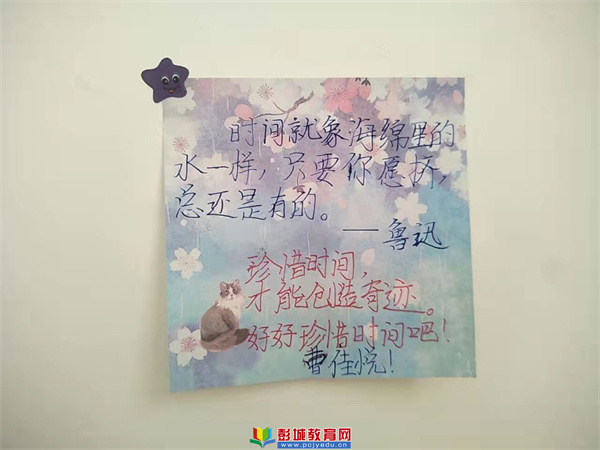 时间就象海绵里的
水一样，只要你愿挤，
总还是有的。
——鲁迅
珍惜时间，
才能创造奇迹。
好好珍惜时间吧！
曹佳悦！
彭城教育网
www.pcjyedu.cn